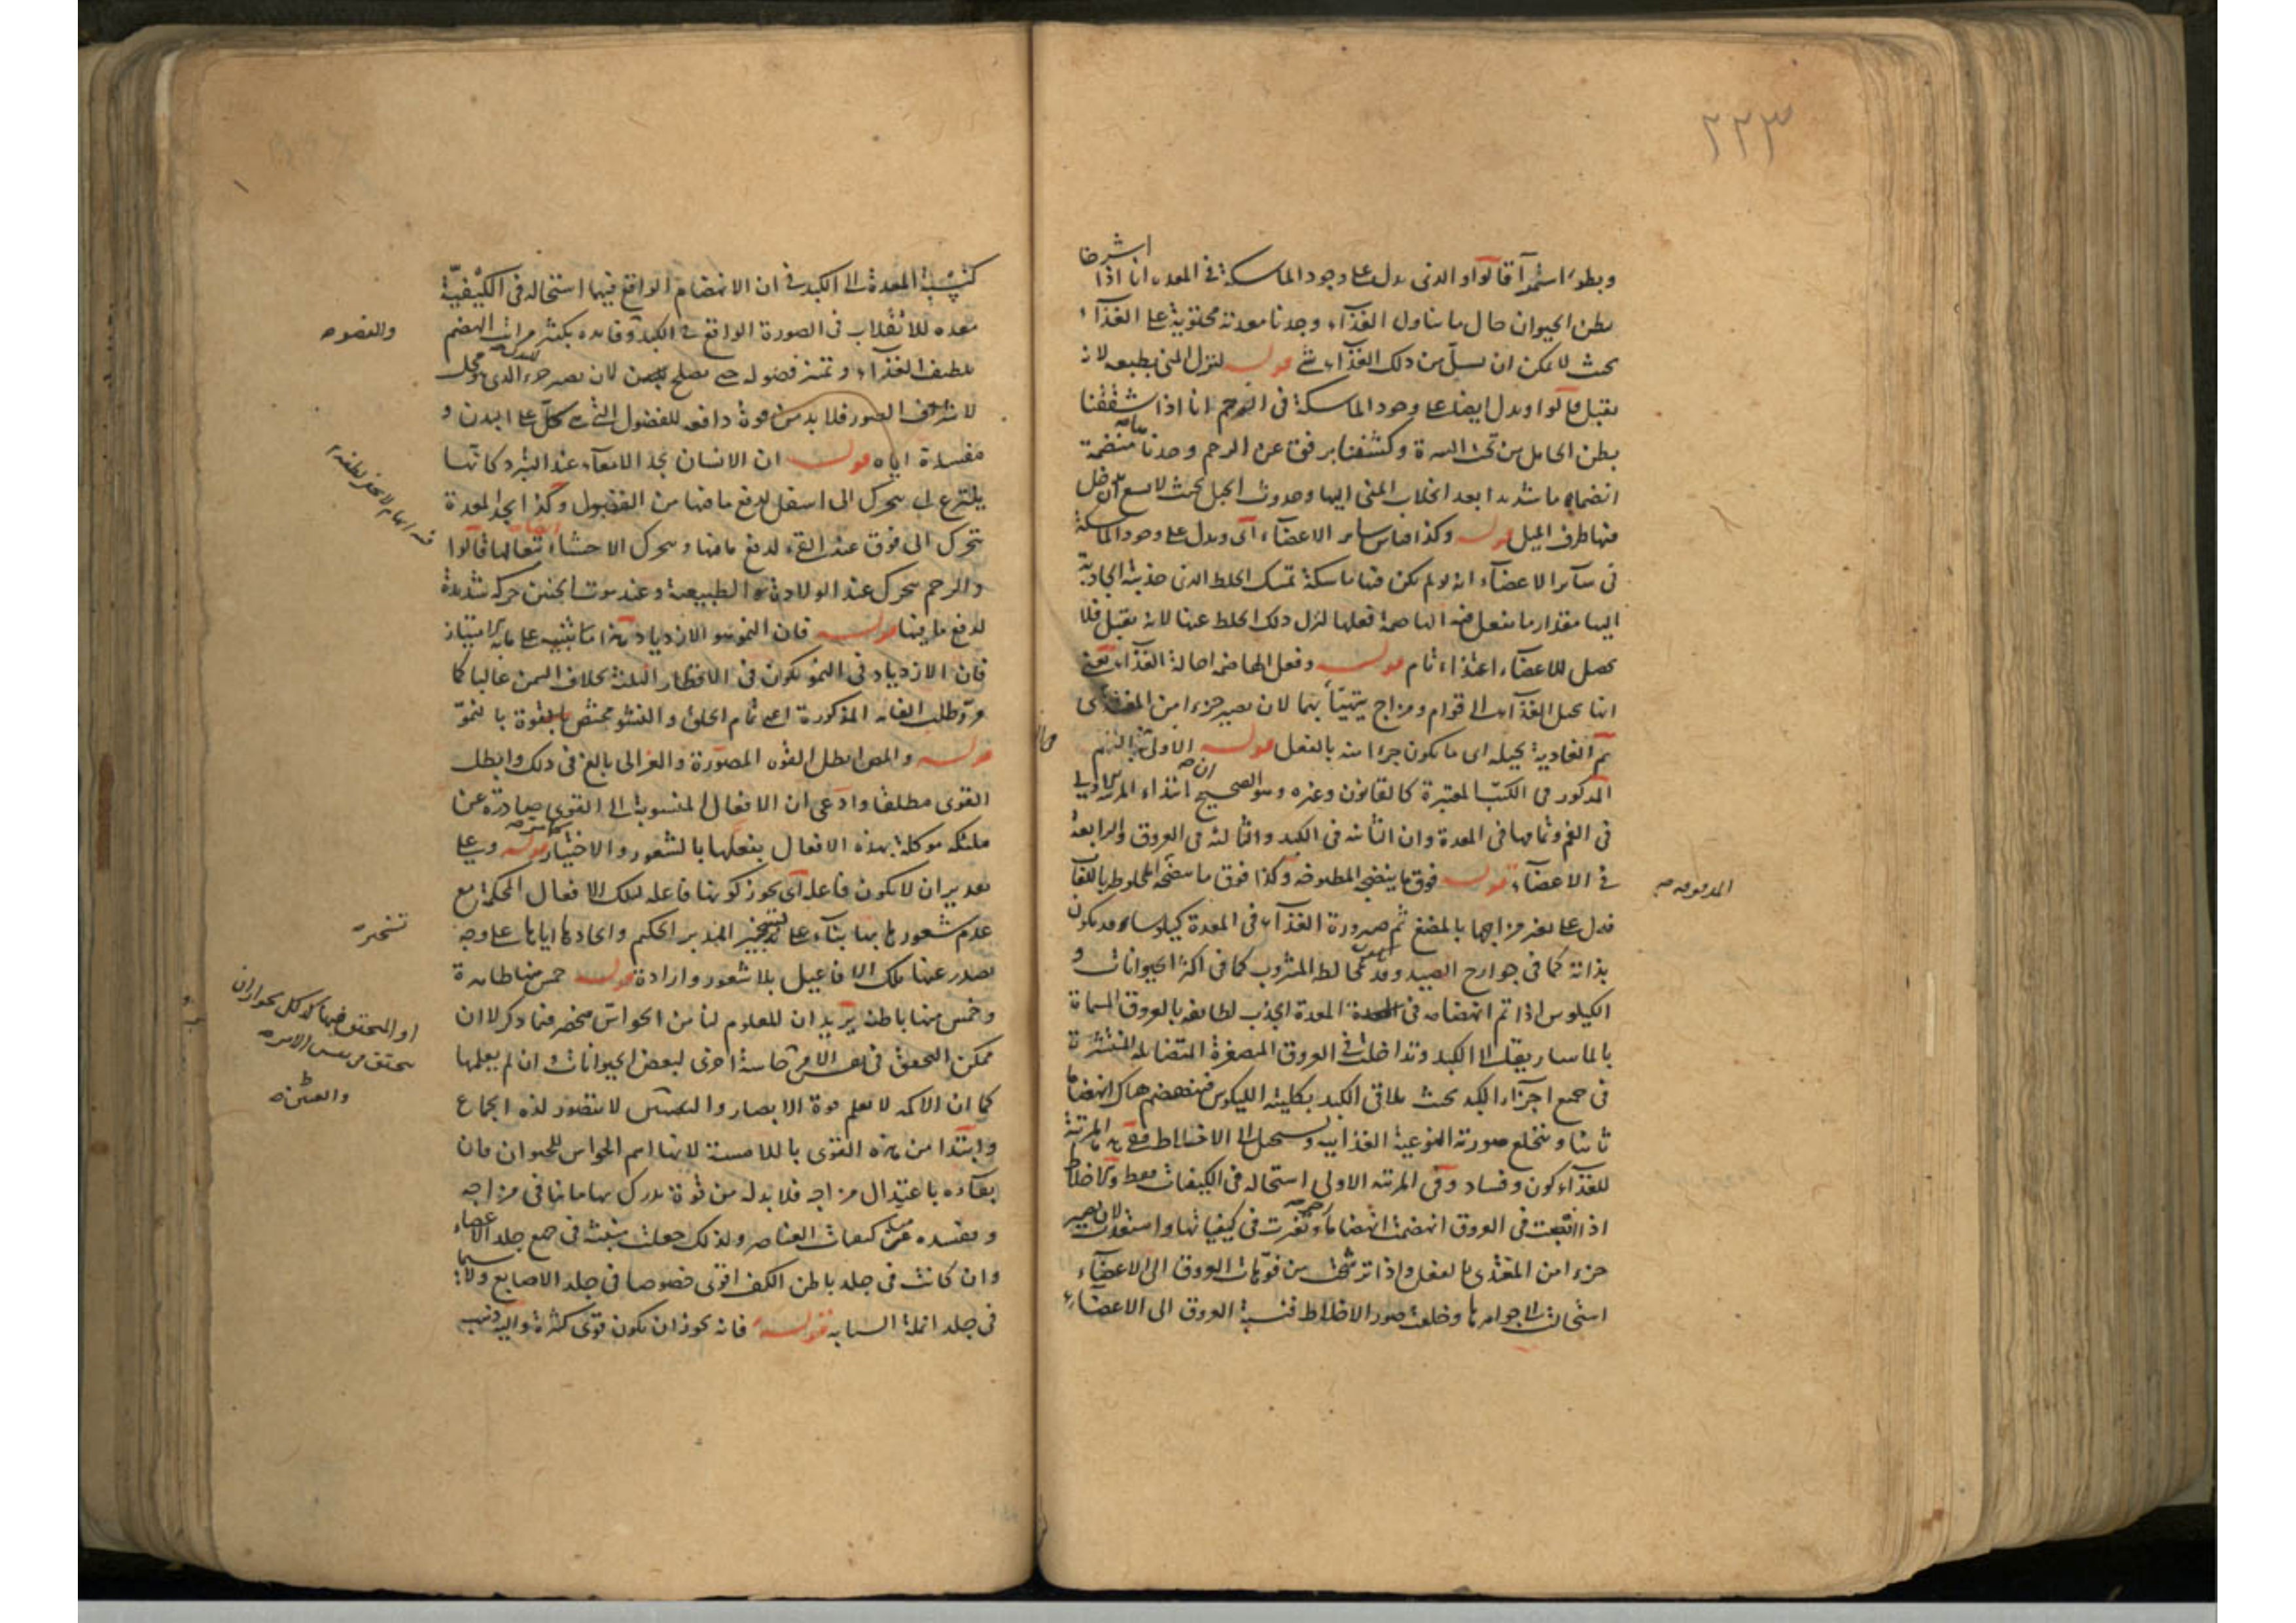 ٢٢٣
اشرحنا
وبطؤ استمرآ قالوا والذى يدل على وجود الماسكة فى المعدة انا اذا
بطن الحيوان حال ما تناول الغذآء وجدنا معدته محتوية على الغذآء
بحيث لا يمكن ان يسيل من ذلك الغذآء شئ قوله لنزل المنى بطبعه لانه
ثقيل قالوا ويدل ايضا على وجود الماسكة فى الرحم انا اذا شققنا
بطن الحامل من تحت السرة وكشفنا برفق عن الرحم وجدناها منضمة
انضماما شديدا بعد انجذاب المنى اليها وحدوث الحبل بحيث لا يسع ان يدخل
فيها طرف الميل قوله وكذا قياس ساير الاعضآء اى ويدل على وجود الماسكة
فى سآير الاعضآء انه لو لم يكن فيها ماسكة تمسك الخلط الذى جذبته الجاذبة
اليها مقدار ما يفعل فيه الهاضمة فعلها لنزل ذلك الخلط عنها لانه ثقيل فلا
يحصل للاعضآء اغتذاء تام قوله وفعل الهاضمة احالة الغذآء يعنى
انها تحيل الغذآء الى قوام ومزاج يتهيّأ بهما لان يصير جزءا من المغتذى
ثم الغاذية تحيله اى ما يكون جزاا منه بالفعل قوله الاولى فى الفم
المذكور فى الكتب المعتبرة كالقانون وغيره وهو الصحيح ان ابتداء المرتبة الاولى
فى الفم وتمامها فى المعدة وان الثانية فى الكبد والثالثة فى العروق والرابعة
فى الاعضآء قوله فوق ما ينضج المطبوخة وكذا فوق ما ينضجه المخلوط باللعاب
المدقوقه صح
فدل على تغير مزاجها بالمضغ ثم صيرورة الغذآء فى المعدة كيلوسا قد يكون
بذاته كما فى جوارح الصيد وقد يكون بمخالطة المشروب كما فى اكثر الحيوانات و
الكيلوس اذا تم انهضامه فى المعدة انجذب لطايفه بالعروق المسماة
بالماساريقا الى الكبد وتداخلت فى العروق المصغرة المتضائلة المنتشرة
فى جميع اجزآء الكبد بحيث يلاقى الكبد بكليته الكيلوس فينهضم هناك انهضاما
ثانيا وينخلع صورته النوعية الغذائية ويستحيل الى الاخلاط ففى هذه المرتبة
للغذآء كون وفساد وفى المرتبة الاولى استحالة فى الكيفيات فقط والاخلاط
اذا انبعثت فى العروق انهضمت انهضاما وتغيرت فى كيفياتها واستعدت لان يصير
جزءا من المغتذى بالفعل واذا ترشحت من فوّهات العروق الى الاعضآء
استحالت الى جواهرها وخلعت صور الاخلاط فنسبة العروق الى الاعضآء
كنسبة المعدة الى الكبد فى ان الانهضام الواقع فيهما استحالة فى الكيفية
معدة للانقلاب فى الصورة الواقع فى الكبد وفايدة تكثر مراتب الهضم
والعضو صح
تلطيف الغذآء وتميز فضوله حتى يصلح لان يصير جزء الذى هو محل
لاشرف الصور فلا بد من قوة دافعة للفضول التى هى كلّ على البدن و
مفسدة اياه قوله ان الانسان يجد الامعآء عند التبرز كانها
ينتزع بل يتحرك الى اسفل لدفع ما فيها من الفضول وكذا يجد المعدة
تتحرك الى فوق عند القئ لدفع ما فيها ويتحرك الاحشاء تبعا لها قالوا
والرحم يتحرك عند الولادة الطبيعية وعند موت الجنين حركة شديدة
لدفع ما فيها قوله فان النمو هو الازدياد هذا تنبيه على ما به الامتياز
فان الازدياد فى النمو يكون فى الاقطار الثلثة بخلاف السمن غالبا كما
مرّ وطلب الغاية المذكورة اعنى تمام الخلق والنشو مختص بالقوة بالنموّ
قوله والمص ابطل القوة المصوّرة والغزالى بالغ فى ذلك وابطل
القوى مطلقا وادعى ان الافعال المنسوبة الى القوى صادرة عن
ملئكة موكلة بهذه الافعال يفعلها بالشعور والاختيار قوله وعلى
تقدير ان لا يكون فاعلة اى يجوز كونها فاعلة لتلك الافعال المحكمة مع
عدم شعورها بها بنآء على تسخير المدبر الحكيم وايجادها اياها على وجه
تسخير صح
يصدر عنها تلك الافاعيل بلا شعور وارادة قوله خمس منها ظاهرة
وخمس منها باطنة يريد ان المعلوم لنا من الحواس منحصر فيما ذكر لا ان
ممكن التحقق فى نفس الامر حاسة اخرى لبعض الحيوانات وان لم يعلمها
كما ان الاكمه لا يعلم قوة الابصار والعنين لا يتصور لذة الجماع
والعنين صح
وابتدا من هذه القوى باللامسة لانها اهم الحواس للحيوان فان
بقآءه باعتدال مزاجه فلا بد له من قوة يدرك بها ما ينافى مزاجه
ويفسده من كيفيات العناصر ولذلك جعلت منبثة فى جميع جلد الاعضاء
وان كانت فى جلد باطن الكف اقوى خصوصا فى جلد الاصابع ولا سيما
فى جلد انملة السبابة قوله فانه يجوز ان يكون قوى كثيرة واليه ذهب